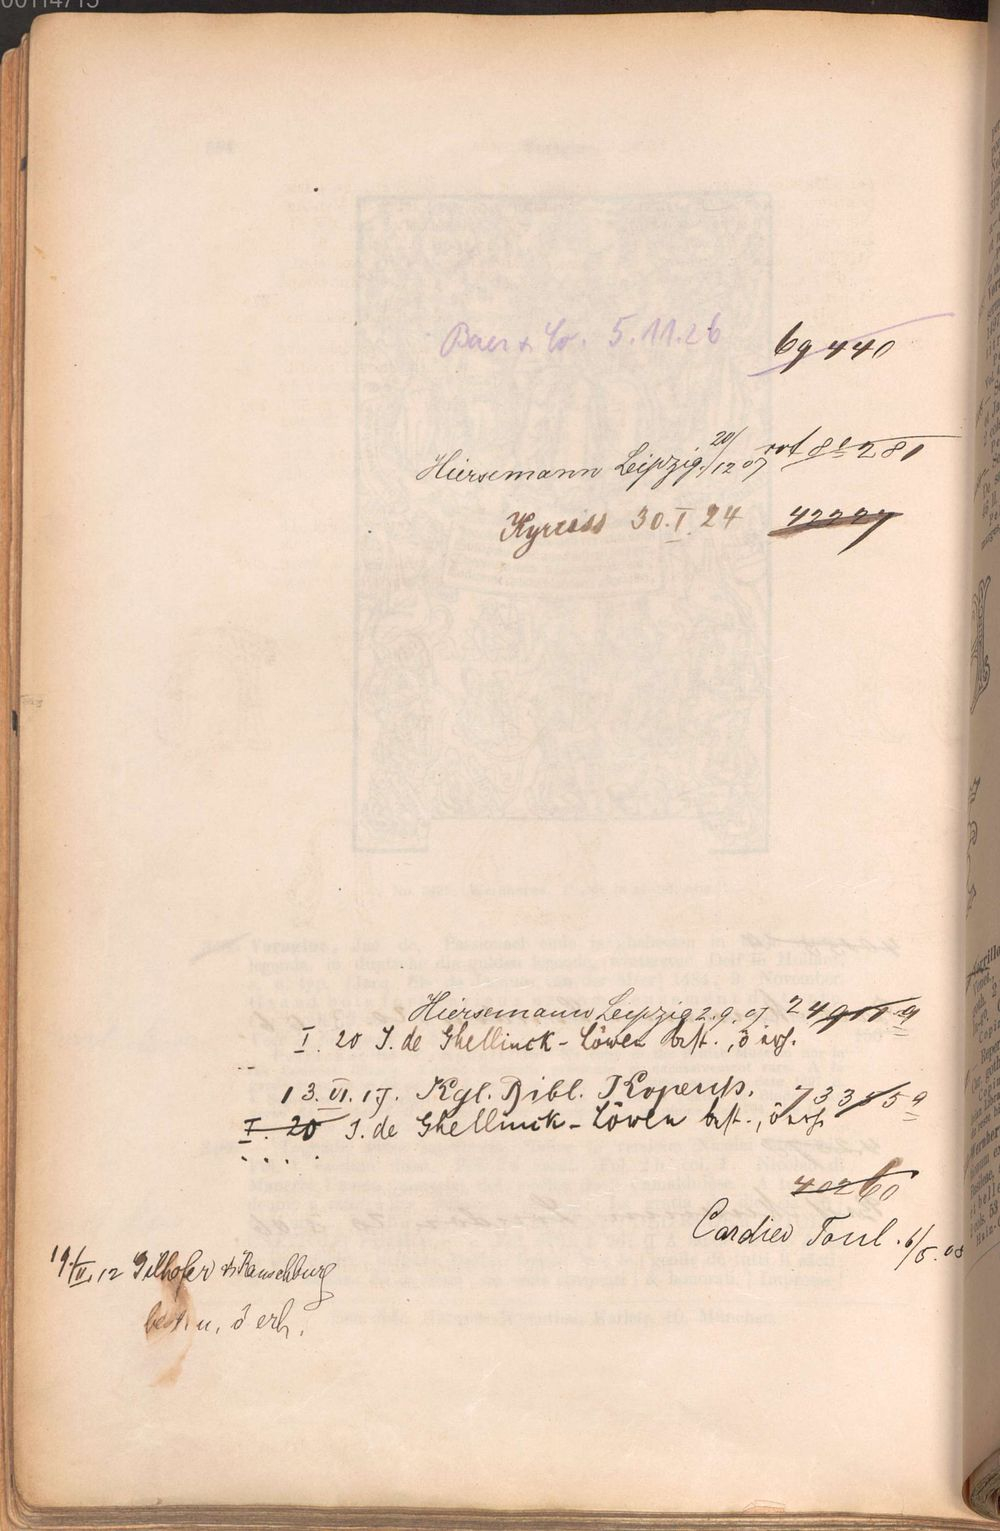 00114715
Baer & Co. 5.11.26 69440
Hiersemann Leipzig 20/12 07 rot 81281
Kyriss 30.I.24 42227
Hiersemann Leipzig 2.9.07
I. 20 J. de Ghellinck-Löwen bst., ö
13.VI.17. Kgl. Bibl. Kopenh. 73359
I. 20 J. de Ghellinck-Löwen bst., ö
40260
Toul. 6/5.08
19/II.12 Gilhofer & Ranschburg
best. u. ö erh.